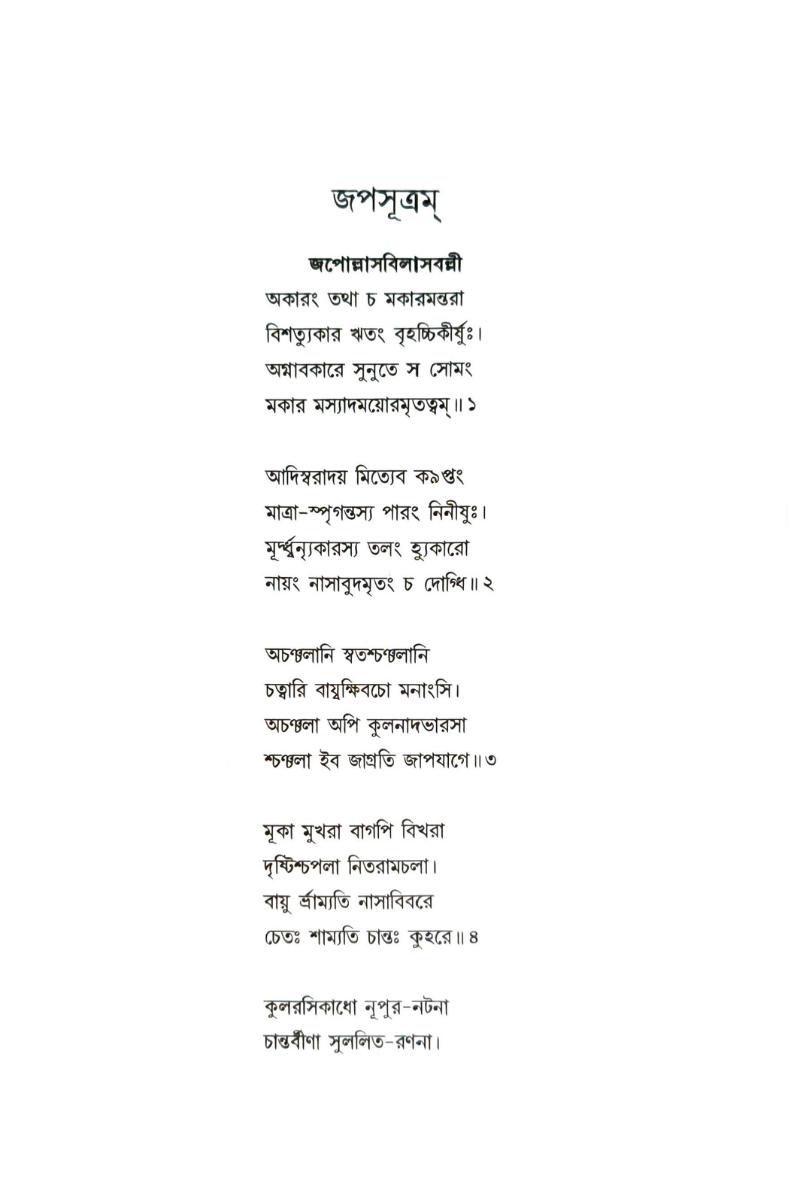 জপসূত্রম্
জপোল্লাসবিলাসবল্লী
অকারং তথা চ মকারমন্তরা
বিশত্যুকার ঋতং বৃহচ্চিকীর্ষুঃ।
অগ্নাবকারে সুনুতে স সোমং
মকার মস্যাদময়োরমৃতত্বম্॥ ১
আদিস্বরাদয় মিত্যেব কঌপ্তং
মাত্রা-স্পৃগন্তস্য পারং নিনীষুঃ।
মূর্দ্ধ্বন্যৃকারস্য তলং হ্যুকারো
নায়ং নাসাবুদমৃতং চ দোগ্ধি॥ ২
অচঞ্চলানি স্বতশ্চঞ্চলানি
চত্বারি বায়্বক্ষিবচো মনাংসি।
অচঞ্চলা অপি কুলনাদভারসা
শ্চঞ্চলা ইব জাগ্রতি জাপযাগে॥ ৩
মূকা মুখরা বাগপি বিখরা
দৃষ্টিশ্চপলা নিতরামচলা।
বায়ু র্ভ্রাম্যতি নাসাবিবরে
চেতঃ শাম্যতি চান্তঃ কুহরে॥ ৪
কুলরসিকাধো নূপুর-নটনা
চান্তর্বীণা সুললিত-রণনা।